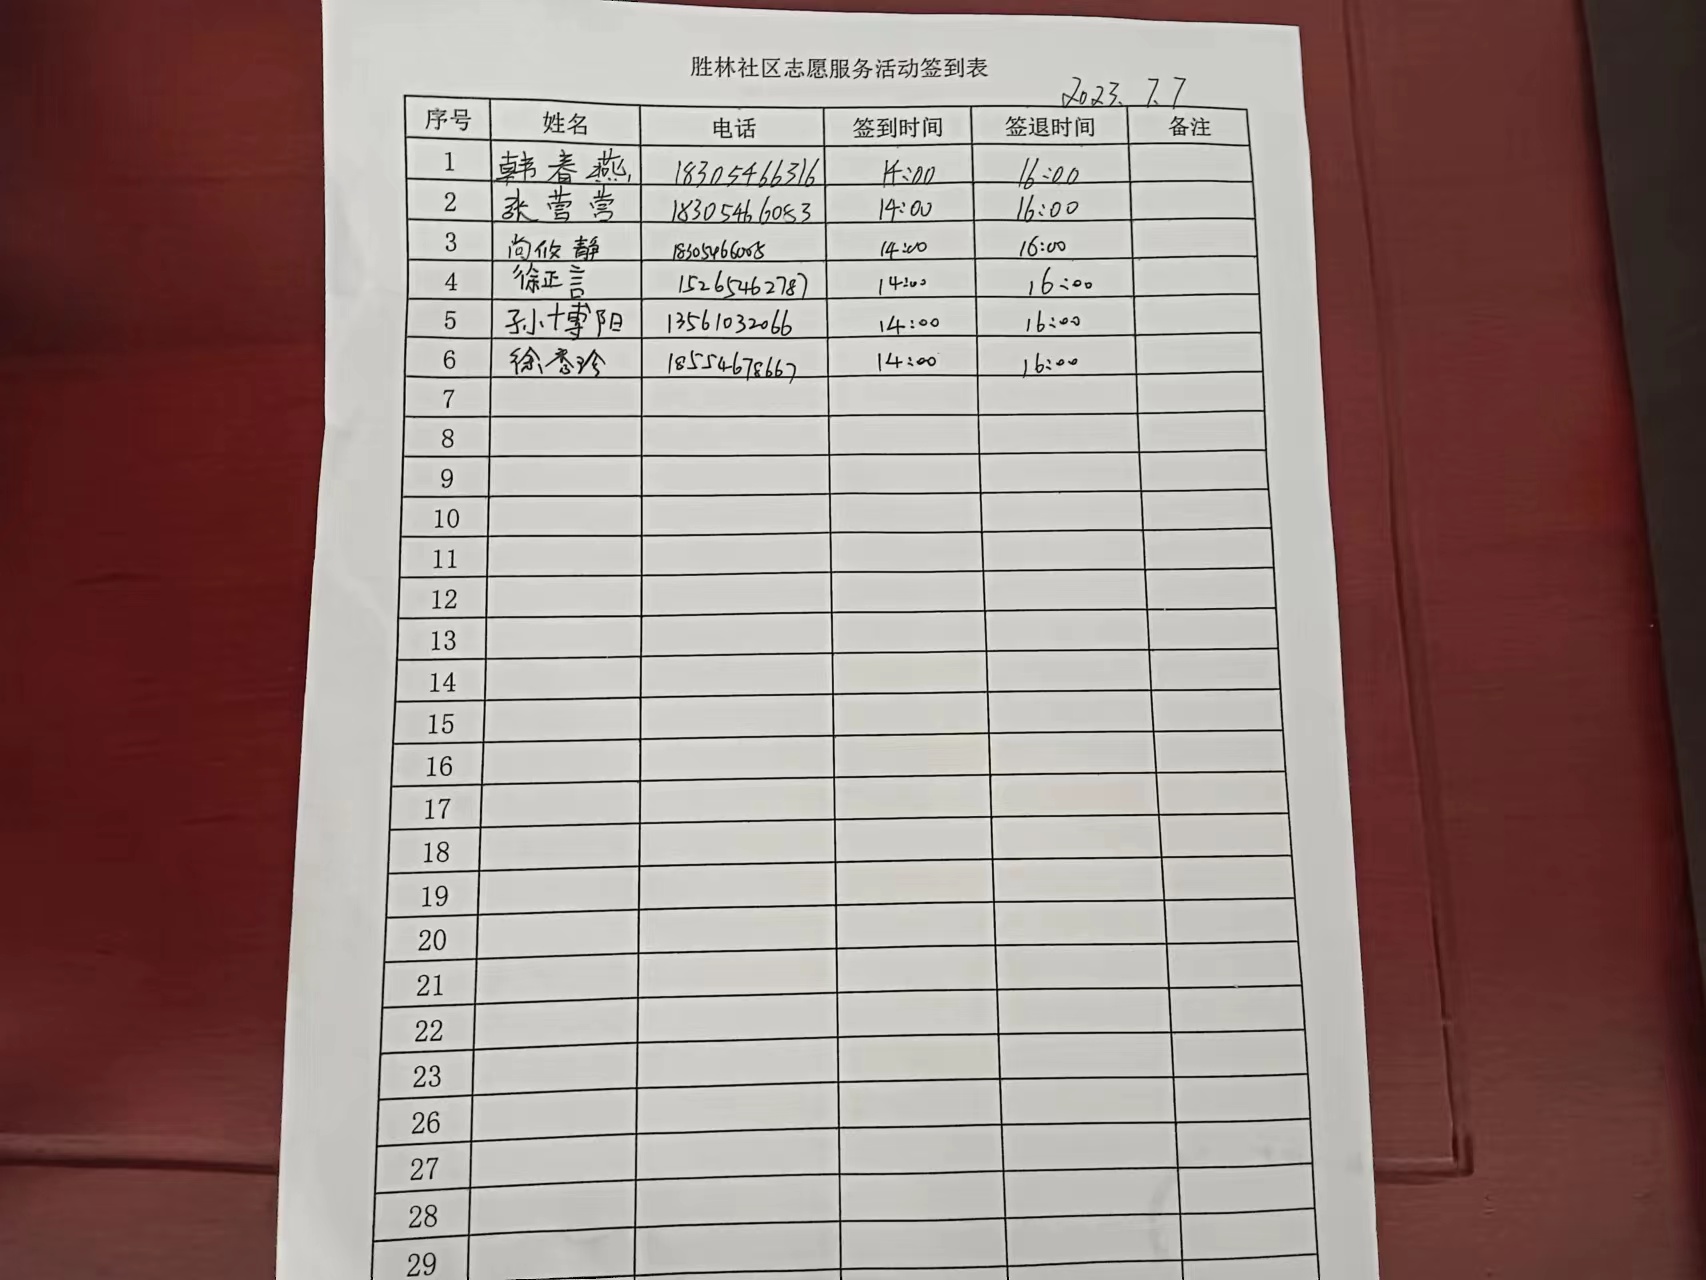 胜林社区志愿服务活动签到表
2023.7.7
序号 姓名 电话 签到时间 签退时间 备注
1 韩春燕 18305466316 14:00 16:00
2 张营营 18305466083 14:00 16:00
3 尚攸静 14:00 16:00
4 徐正言 15265462787 14:00 16:00
5 孙博阳 13561032066 14:00 16:00
6 徐秀珍 18554678667 14:00 16:00
7
8
9
10
11
12
13
14
15
16
17
18
19
20
21
22
23
26
27
28
29